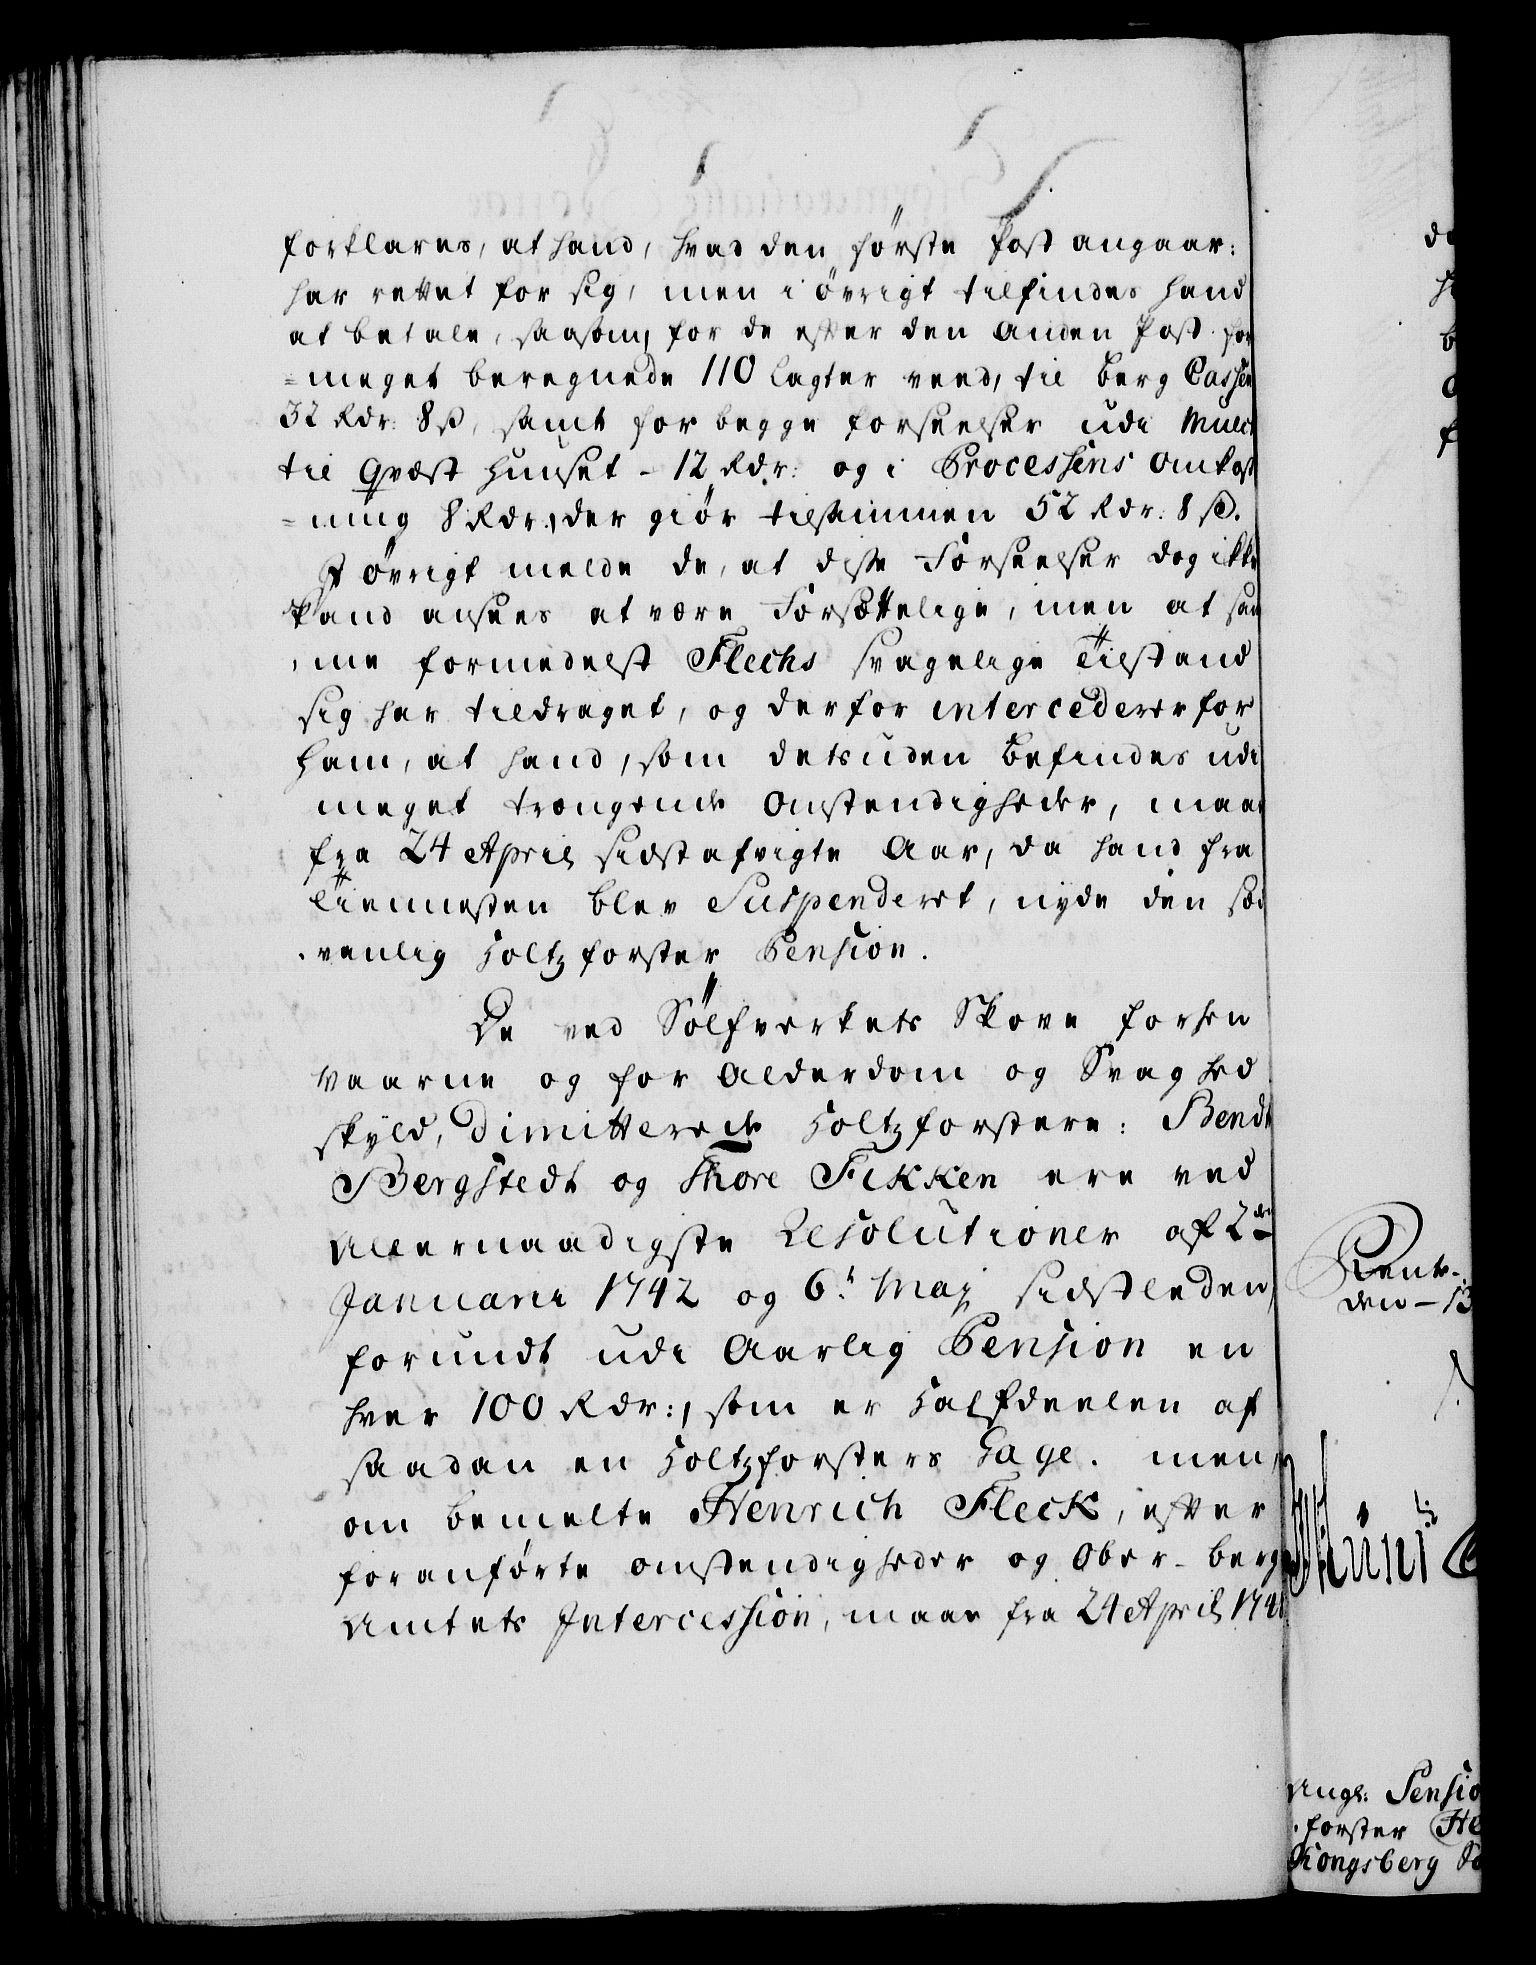 forklares, at hand, hvad den første Post angaar:
har rettet for sig, men i øvrigt tilfindes hand
at betale, saasom, for de efter den Anden Post for
=meget beregnede 110 Lagter veed, til Berg Cassen
32 Rdr: 8 ß, samt for begge forseelser udi Mulct
til Qvæst Huuset - 12 Rdr: og i Processens Omkost
=ning 8 Rdr:, der giør tilsammen 52 Rdr: 8 ß.
J øvrigt melde de, at disse Forseelser dog ikke
kand ansees at være Forsættelige, men at sam
,me formedelst Flechs svagelige Tilstand
sig har tildraget, og derfor intercederer for
ham, at hand, som detsuden befindes udi
meget trængende Omstendigheder, maae
fra 24 April sidstafvigte Aar, da hand fra
Tienesten blev Suspenderet, nyde den sæd
,vanlig Holtzforster Pension.
De ved Sølfverkets Skove forhen
værne og for Alderdom og Svaghed
skyld, dimitterede Holtzforstere: Bendt
Bergstedt og Thore Fikken ere ved
Allernaadigste Resolutioner af 2den
Januarii 1742 og 6t Maj sidstleden,
forundt udi Aarlig Pension en
hver 100 Rdr:, som er Halfdeelen af
saadan en Holtzforsters Gage. men,
om bemelte Henrich Fleck, efter
foranførte omstendigheder og Ober-berg
Amtets Intercession, maae fra 24 April 174
Rente-
den - 13
Angl: Pensio
,forster He
Kongsberg